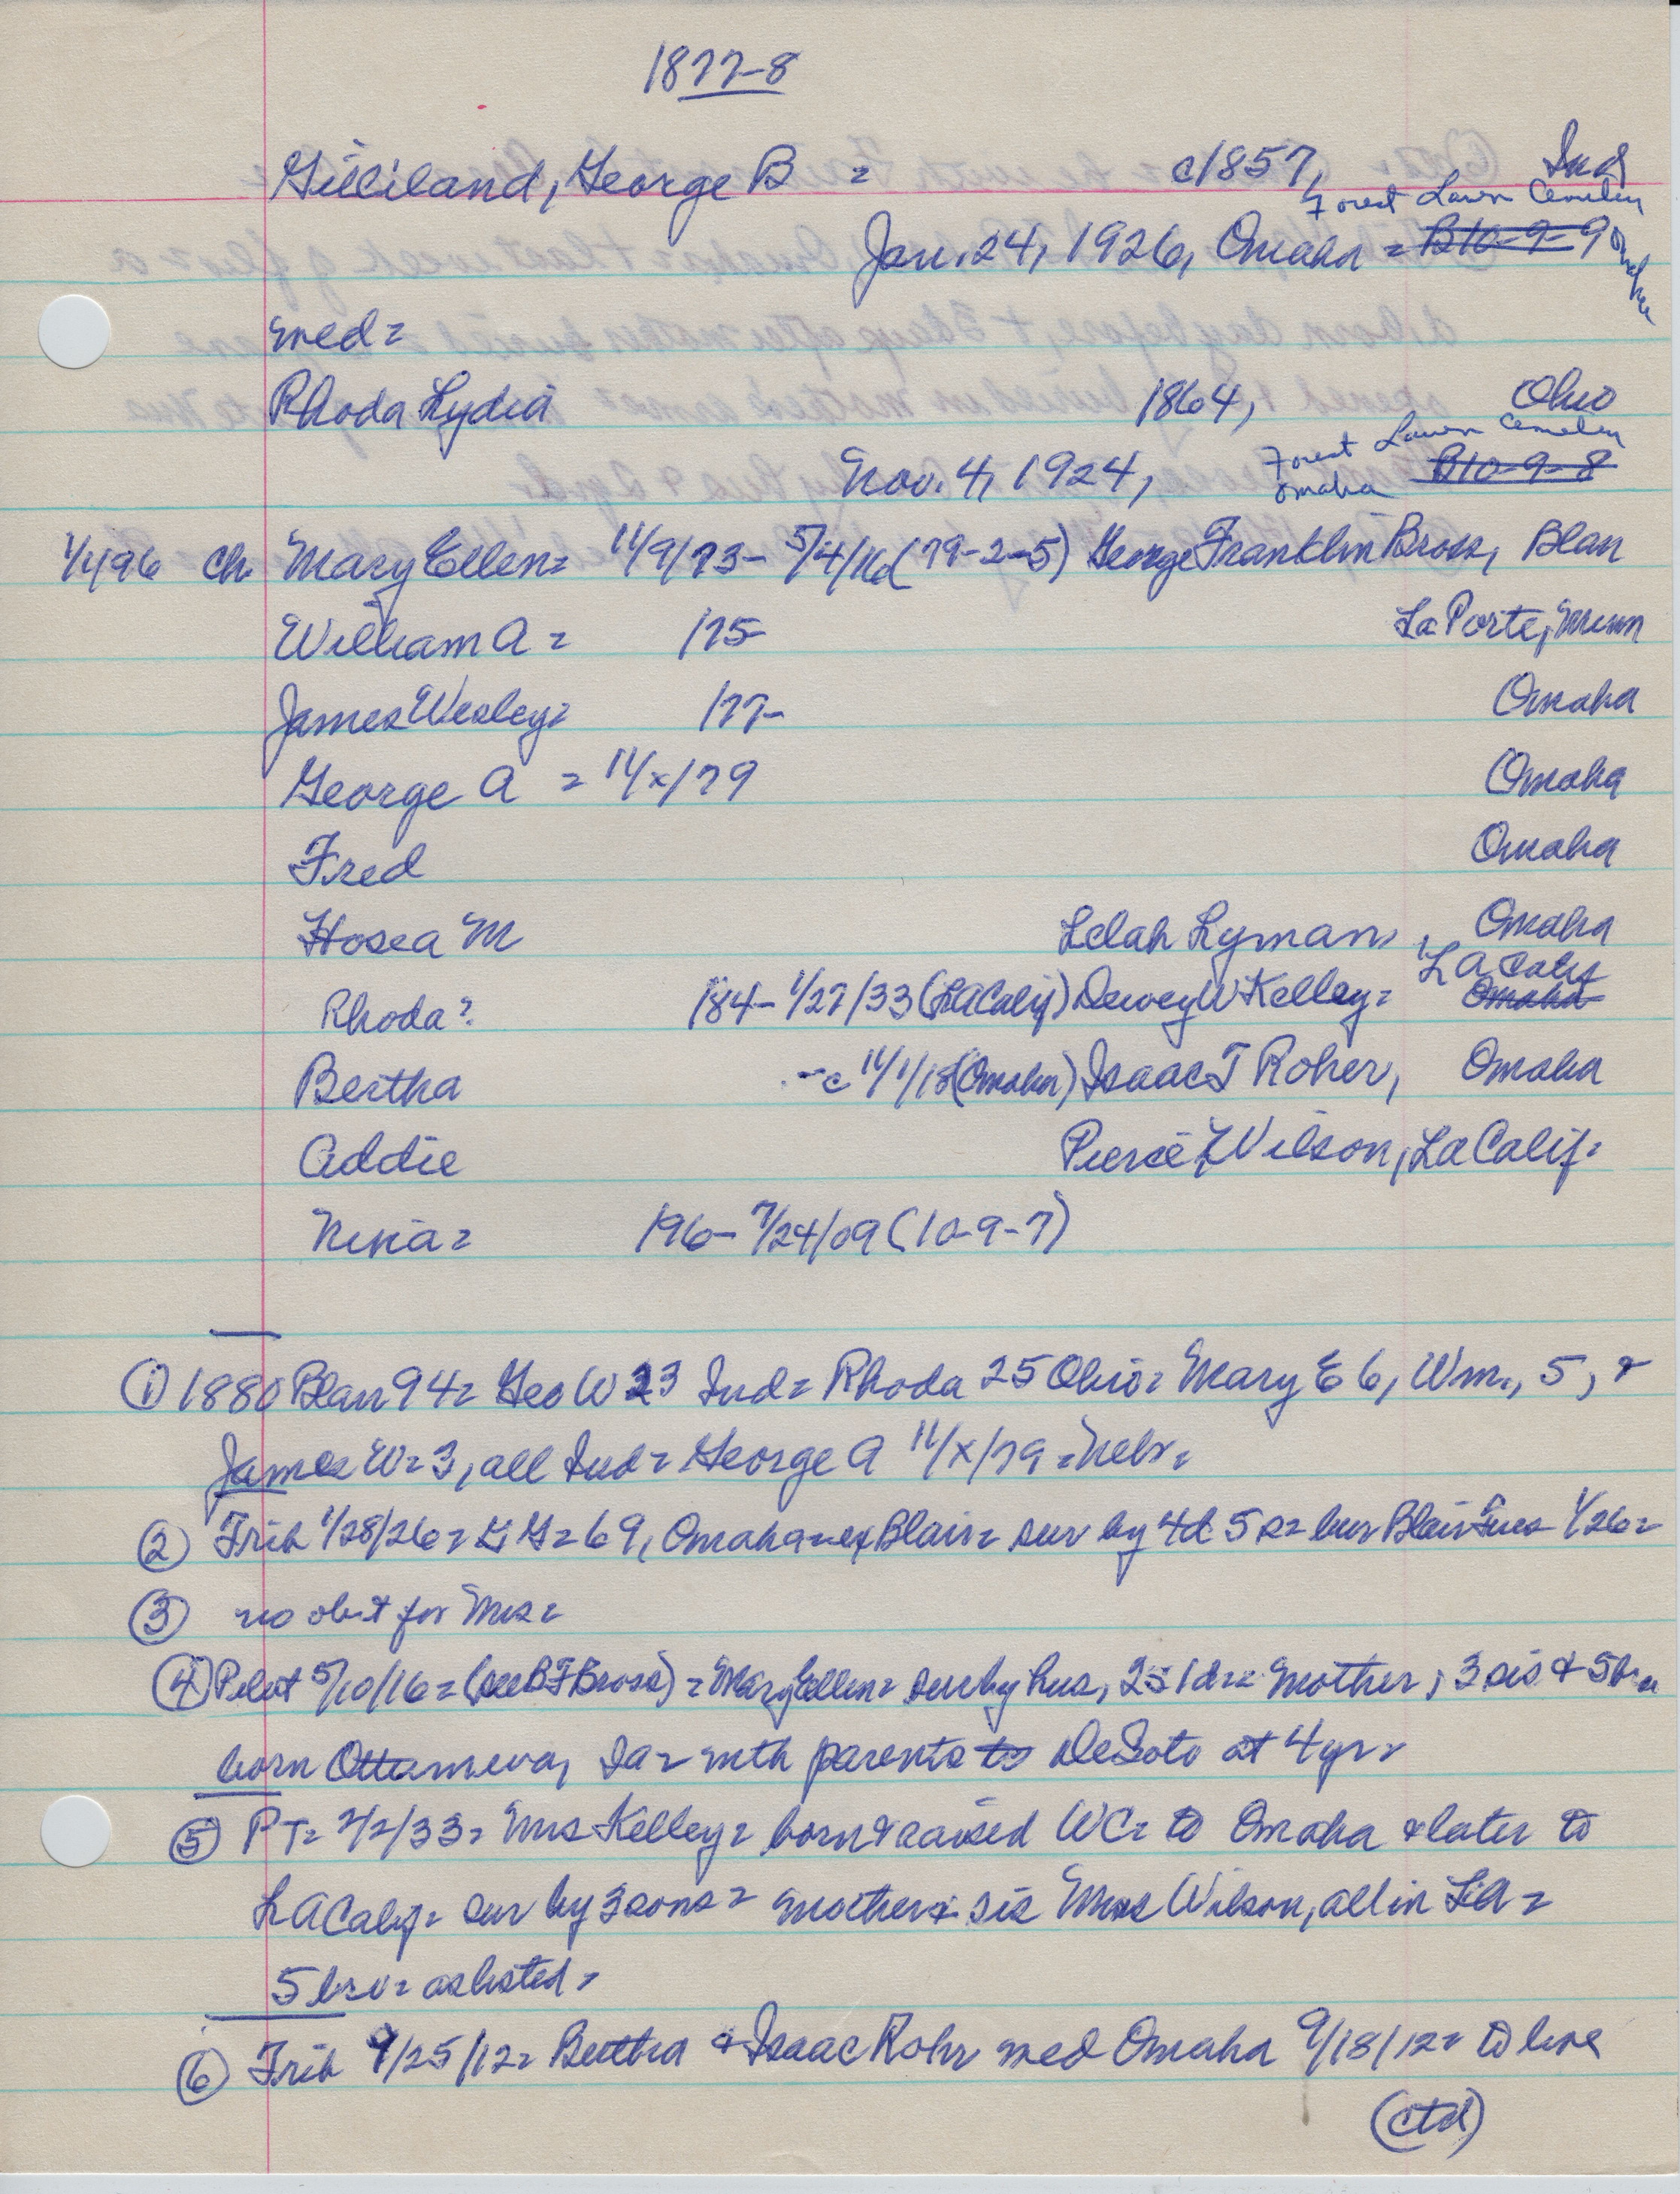 1877-8
Gilliland, George B = c1857, Ind
Forest Lawn Cemetery
Jan. 24, 1926, Omaha = B10-9-9 Omaha
med=
Rhoda Lydia 1864, Ohio
Forest Lawn Cemetery
Nov. 4, 1924, Omaha B10-9-8
1/1/96 Ch. Mary Ellen= 11/9/73- 5/4/16 (79-2-5) George Franklin Bross, Blair
William A = /75- LaPorte, Minn
James Wesley= /77- Omaha
George A = 11/x/79 Omaha
Fred Omaha
Hosea M Lelah Lyman, Omaha
LA Calif
Rhoda? /84- 1/27/33 (LA Calif) Dewey W Kelley= Omaha
Bertha -c 11/1/18 (Omaha) Isaac T Roher, Omaha
Addie Pierce Wilson, La Calif=
Nina= /96- 7/24/09 (10-9-7)
① 1880 Blair 94= Geo W 23 Ind= Rhoda 25 Ohio= Mary E 6, Wm., 5, &
James W=3, all Ind= George A 11/x/79=Nebr=
② Trib 1/28/26= GG=69, Omaha=ex Blair= sur by 4d 5s= bur Blair Tues 1/26=
③ no obit for Mrs=
④ Pilot 5/10/16=(see B F Bross)=Mary Ellen= sur by hus, 2s 1d== Mother, 3 sis & 5 bro
born Ottumewa, Ia= with parents to DeSoto at 4 yrs
⑤ PT= 2/2/33= Mrs Kelley= born & raised WC= to Omaha & later to
LA Calif= sur by 3 sons= mother & sis Mrs Wilson, all in LA=
5 bro= as listed=
⑥ Trib 9/25/12= Bertha & Isaac Rohr med Omaha 9/18/12= to live
(ctd)